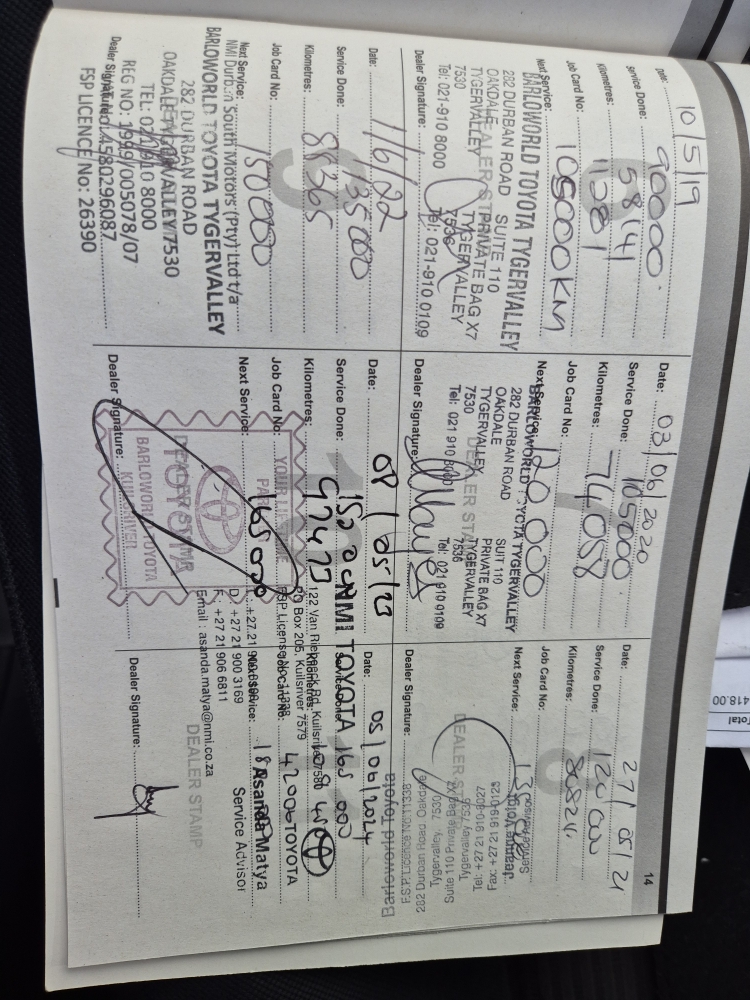 14
Date: 10/5/19
Service Done: 90000.
Kilometres: 58141
Job Card No: 11281
Next Service: 105000km
BARLOWORLD TOYOTA TYGERVALLEY
282 DURBAN ROAD SUITE 110
OAKDALE PRIVATE BAG X7
TYGERVALLEY TYGERVALLEY
7530 7536
Tel: 021-910 8000 Tel: 021-910 0109
DEALER STAMP
Dealer Signature:
Date: 03/06/2020
Service Done: 105000.
Kilometres: 74058
Job Card No:
Next Service: 120 000
BARLOWORLD TOYOTA TYGERVALLEY
282 DURBAN ROAD SUIT 110
OAKDALE PRIVATE BAG X7
TYGERVALLEY TYGERVALLEY
7530 7536
Tel: 021 910 8000 Tel: 021 910 0109
DEALER STAMP
Dealer Signature:
Date: 27/05/21
Service Done: 120 000
Kilometres:
Job Card No:
Next Service:
Barloworld Toyota
282 Durban Road Oakdale
Tygervalley, 7530
Suite 110 Private Bag X7
Tygervalley 7536
Service Advisor
DEALER
Dealer Signature:
Date: 1/6/22
Service Done: 135 000
Kilometres: 88365
Job Card No:
Next Service: 150000
NMI Durban South Motors (Pty) Ltd t/a
BARLOWORLD TOYOTA TYGERVALLEY
282 DURBAN ROAD
OAKDALE TYGERVALLEY 7530
TEL: 021 910 8000
REG NO: 1999/005078/07
VAT No: 4580296087
FSP LICENCE No: 26390
Dealer Signature:
10
Date: 08/05/23
Service Done: 150 000
Kilometres: 97473
Job Card No:
Next Service: 165 000
DEALER STAMP
TOYOTA
BARLOWORLD TOYOTA
KUILSRIVER
Dealer Signature:
11
Date: 05/06/2024
Service Done: 165 000
Kilometres:
Job Card No:
Next Service:
NMI TOYOTA
122 Van Riebeeck Rd, Kuilsriver 7580
PO Box 205, Kuilsriver 7579
TOYOTA
Asanda Matya
Service Advisor
D: +27 21 900 3169
F: +27 21 906 6811
Email : asanda.matya@nmi.co.za
DEALER STAMP
Dealer Signature:
418.00
Total